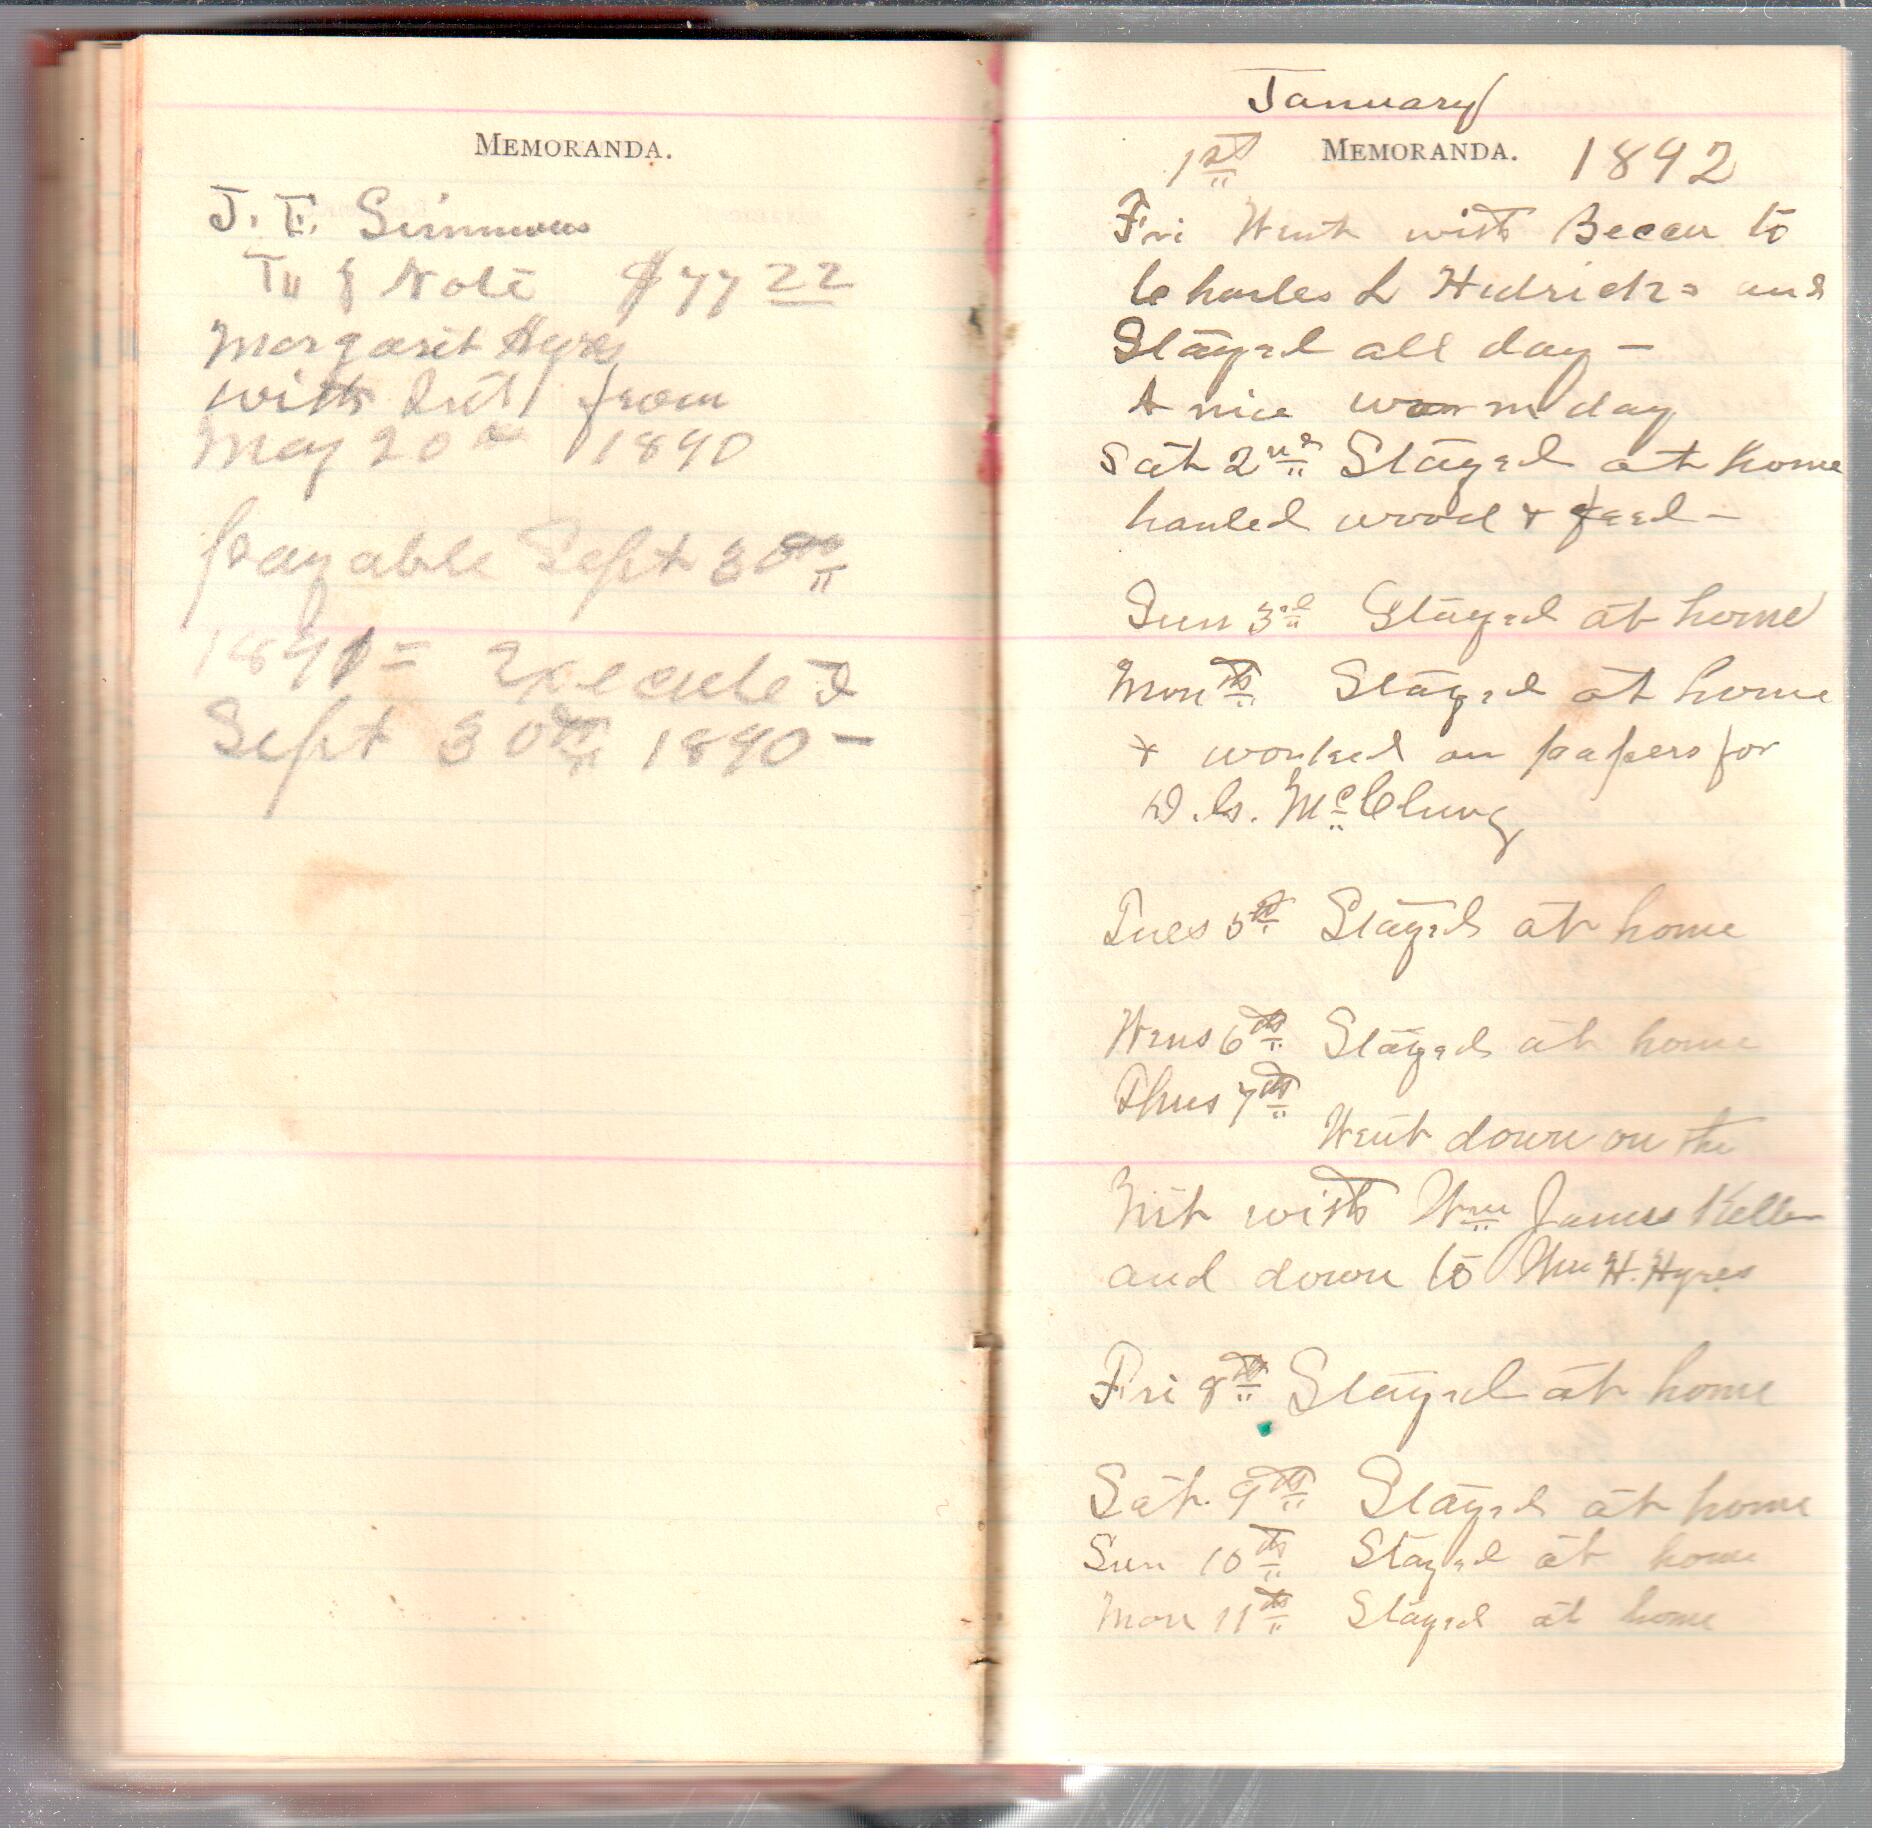 MEMORANDA.
J. E. Simmons
To 1 Note $77 22
Margaret Hyres
with Int from
May 20th 1890
payable Sept 30th
1891 = Executed
Sept 30th 1890 -
January
1st MEMORANDA. 1892
Fri Went with to
Charles L Hedricks and
Stayed all day -
A nice warm day
Sat 2nd Stayed at home
hauled wood + feed -
Sun 3rd Stayed at home
Mon th Stayed at home
+ worked on papers for
McClung
Tues 5th Stayed at home
Wens 6th Stayed at home
Thus 7th
Went down on the
with Wm James Keller
and down to Wm H. Hyres
Fri 8th Stayed at home
Sat. 9th Stayed at home
Sun 10th Stayed at home
Mon 11th Stayed at home